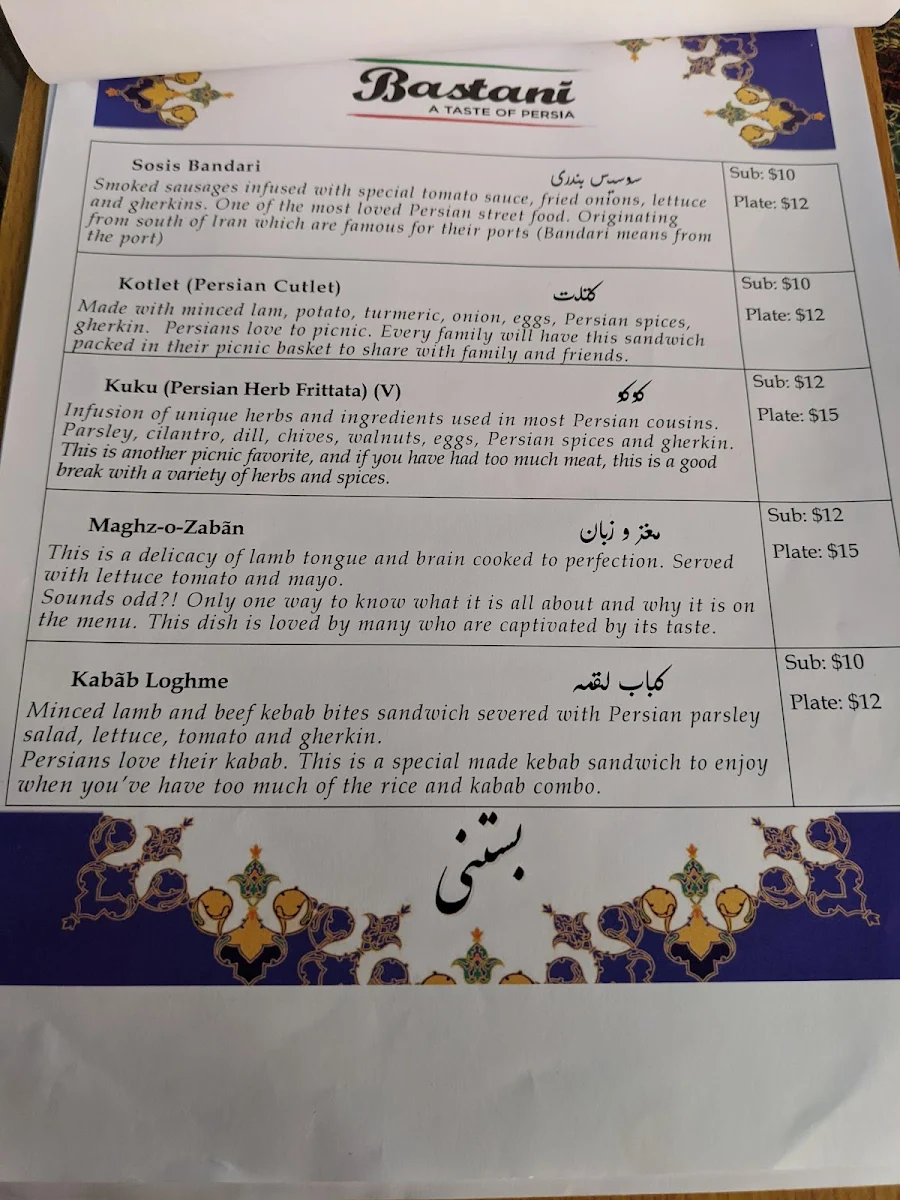 Bastanĩ
A TASTE OF PERSIA
Sosis Bandari
سوسیس بندری
Smoked sausages infused with special tomato sauce, fried onions, lettuce
and gherkins. One of the most loved Persian street food. Originating
from south of Iran which are famous for their ports (Bandari means from
the port)
Sub: $10
Plate: $12
Kotlet (Persian Cutlet)
کتلت
Made with minced lam, potato, turmeric, onion, eggs, Persian spices,
gherkin. Persians love to picnic. Every family will have this sandwich
packed in their picnic basket to share with family and friends.
Sub: $10
Plate: $12
Kuku (Persian Herb Frittata) (V)
کوکو
Infusion of unique herbs and ingredients used in most Persian cousins.
Parsley, cilantro, dill, chives, walnuts, eggs, Persian spices and gherkin.
This is another picnic favorite, and if you have had too much meat, this is a good
break with a variety of herbs and spices.
Sub: $12
Plate: $15
Maghz-o-Zabãn
مغز و زبان
This is a delicacy of lamb tongue and brain cooked to perfection. Served
with lettuce tomato and mayo.
Sounds odd?! Only one way to know what it is all about and why it is on
the menu. This dish is loved by many who are captivated by its taste.
Sub: $12
Plate: $15
Kabãb Loghme
کباب لقمه
Minced lamb and beef kebab bites sandwich severed with Persian parsley
salad, lettuce, tomato and gherkin.
Persians love their kabab. This is a special made kebab sandwich to enjoy
when you've have too much of the rice and kabab combo.
Sub: $10
Plate: $12
بستنی